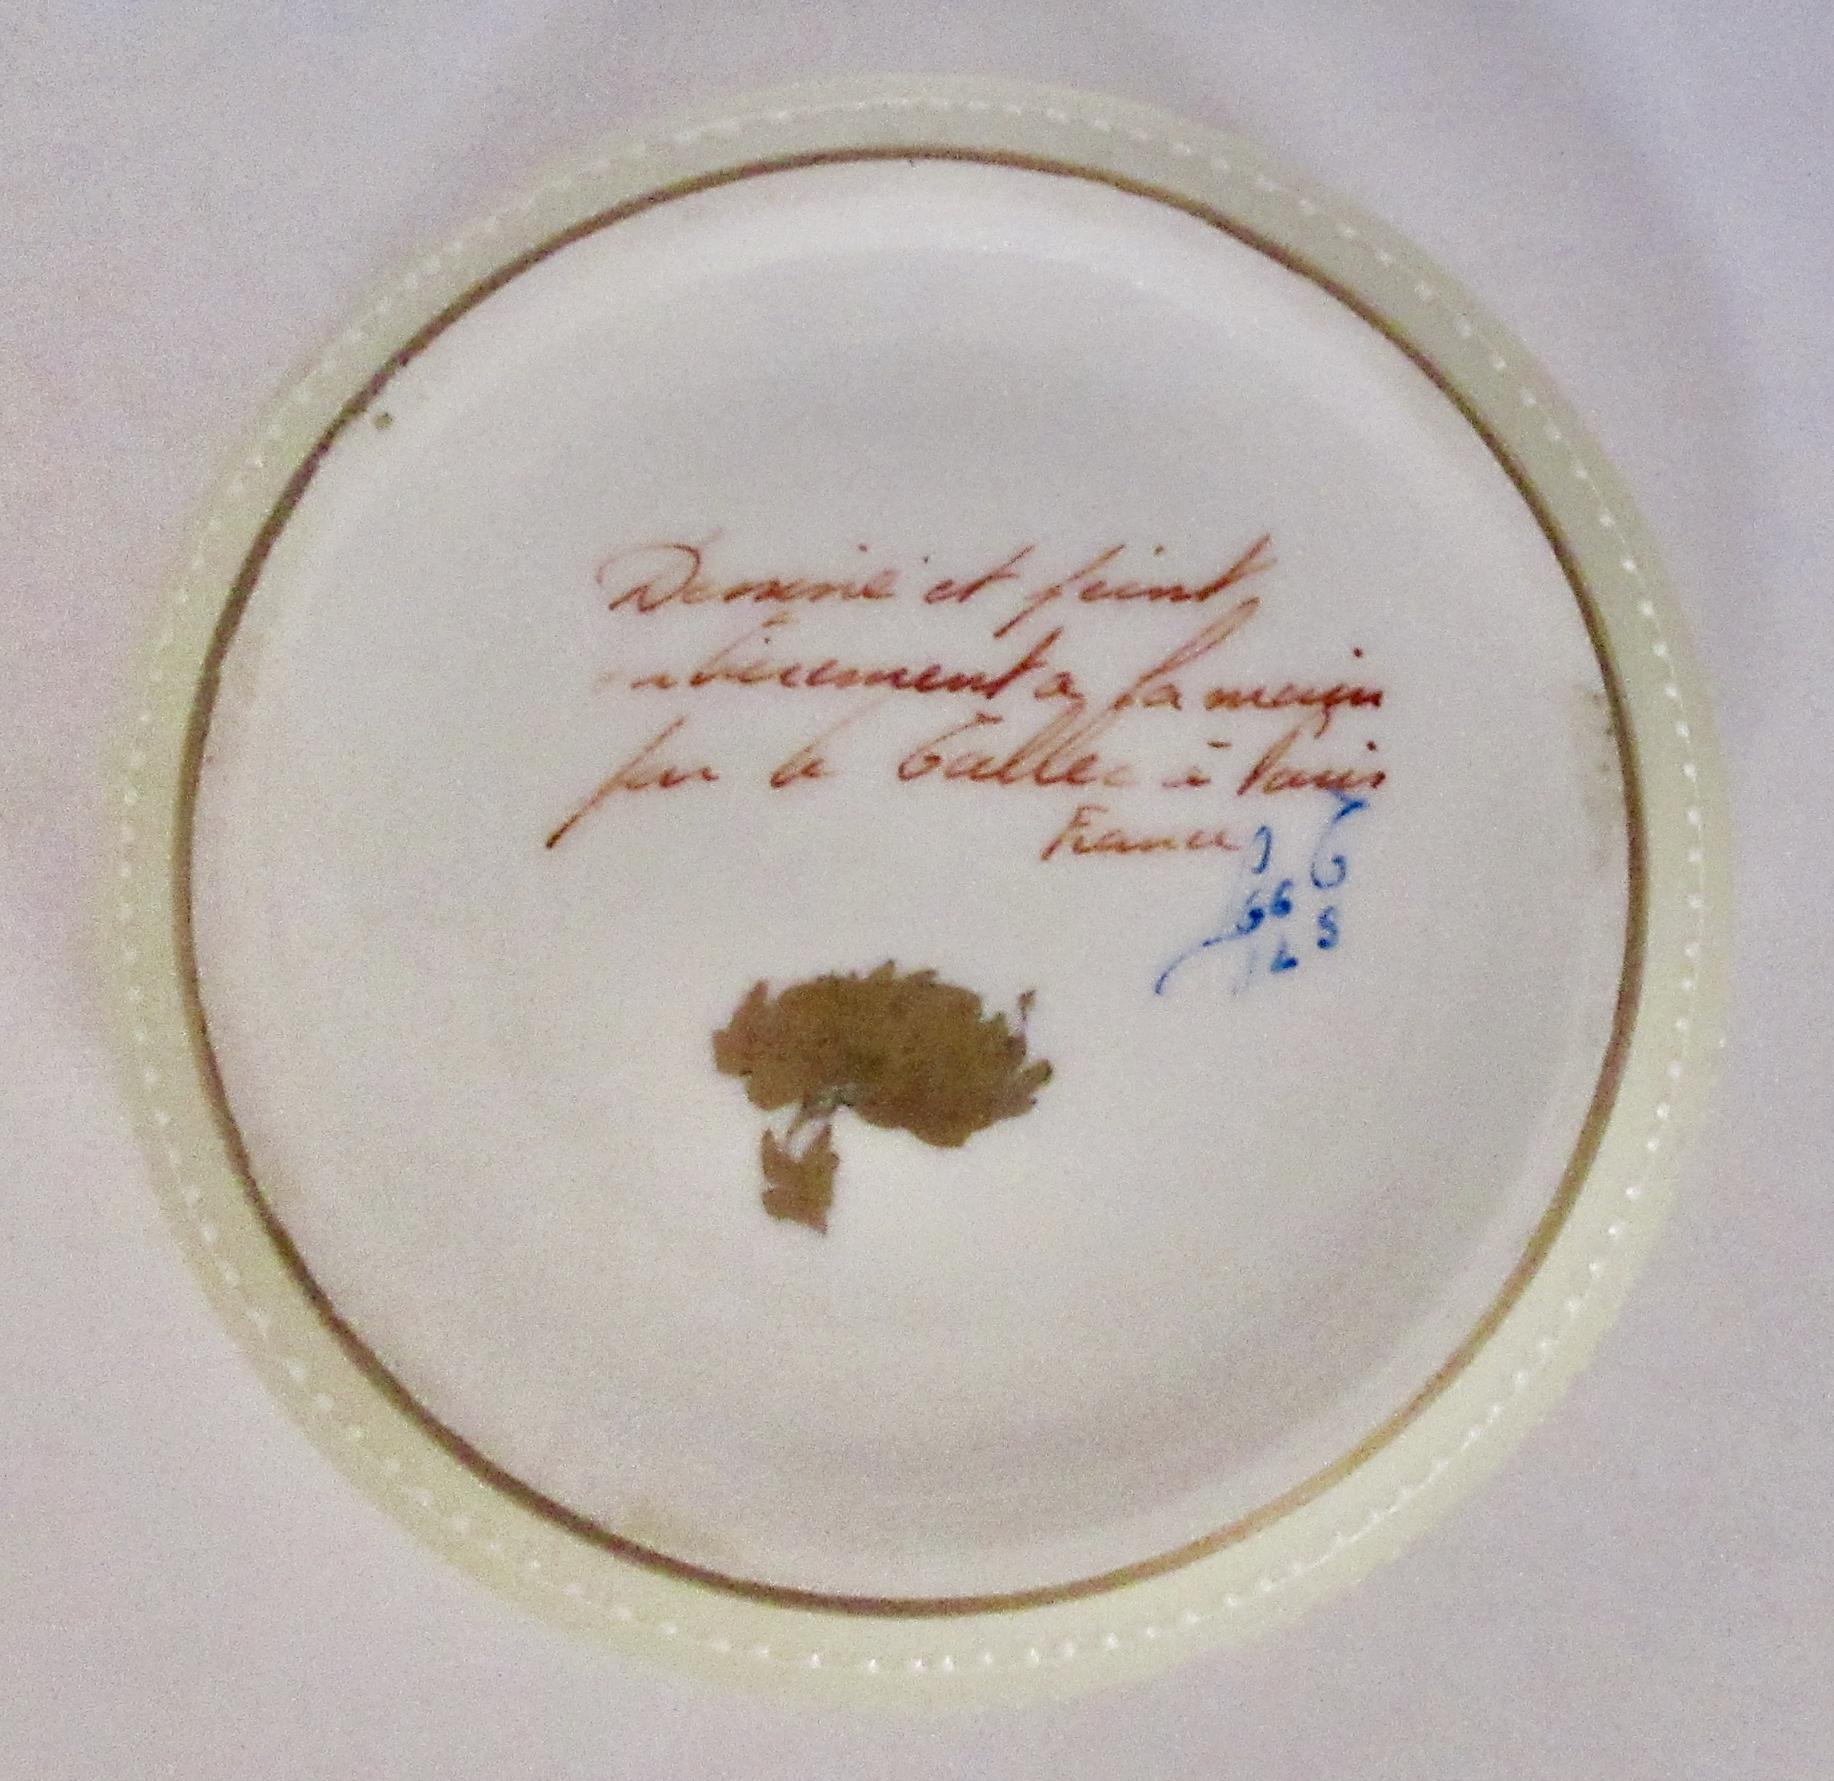 Dessiné et peint
entièrement a la main
par le Tallec à Paris
France